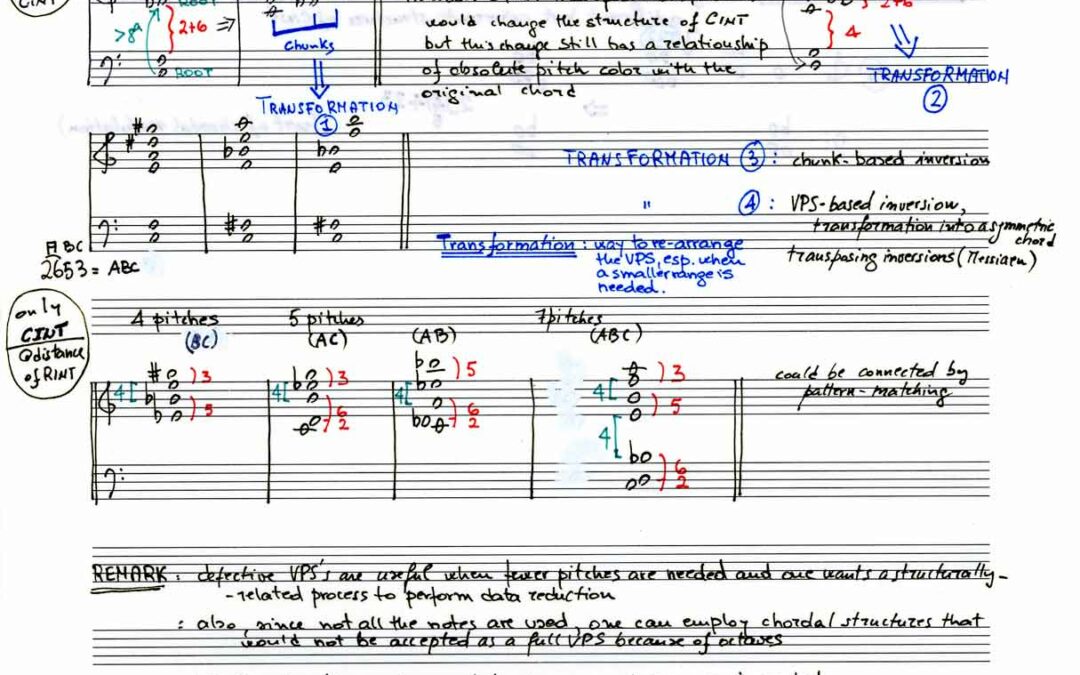 CINT
>8ᵃ
ROOT
2+6 ⇒
ROOT
chunks
would change the structure of CINT
but this change still has a relationship
of absolute pitch color with the
original chord
2+6
4
TRANSFORMATION
2
TRANSFORMATION
1
TRANSFORMATION 3 : chunk-based inversion
" 4 : VPS-based inversion,
transformation into a symmetric
chord
transposing inversions (Messiaen)
Transformation : way to re-arrange
the VPS, esp. when
a smaller range is
needed.
A BC
2653 = ABC
only
CINT
@distance
of RINT
4 pitches
(BC)
5 pitches
(AC)
(AB)
7 pitches
(ABC)
4 3
5
4 3
6
2
4 5
6
2
4 3
5
4
6
2
could be connected by
pattern-matching
REMARK : defective VPS's are useful when fewer pitches are needed and one wants a structurally-
-related process to perform data reduction
: also, since not all the notes are used, one can employ chordal structures that
would not be accepted as a full VPS because of octaves